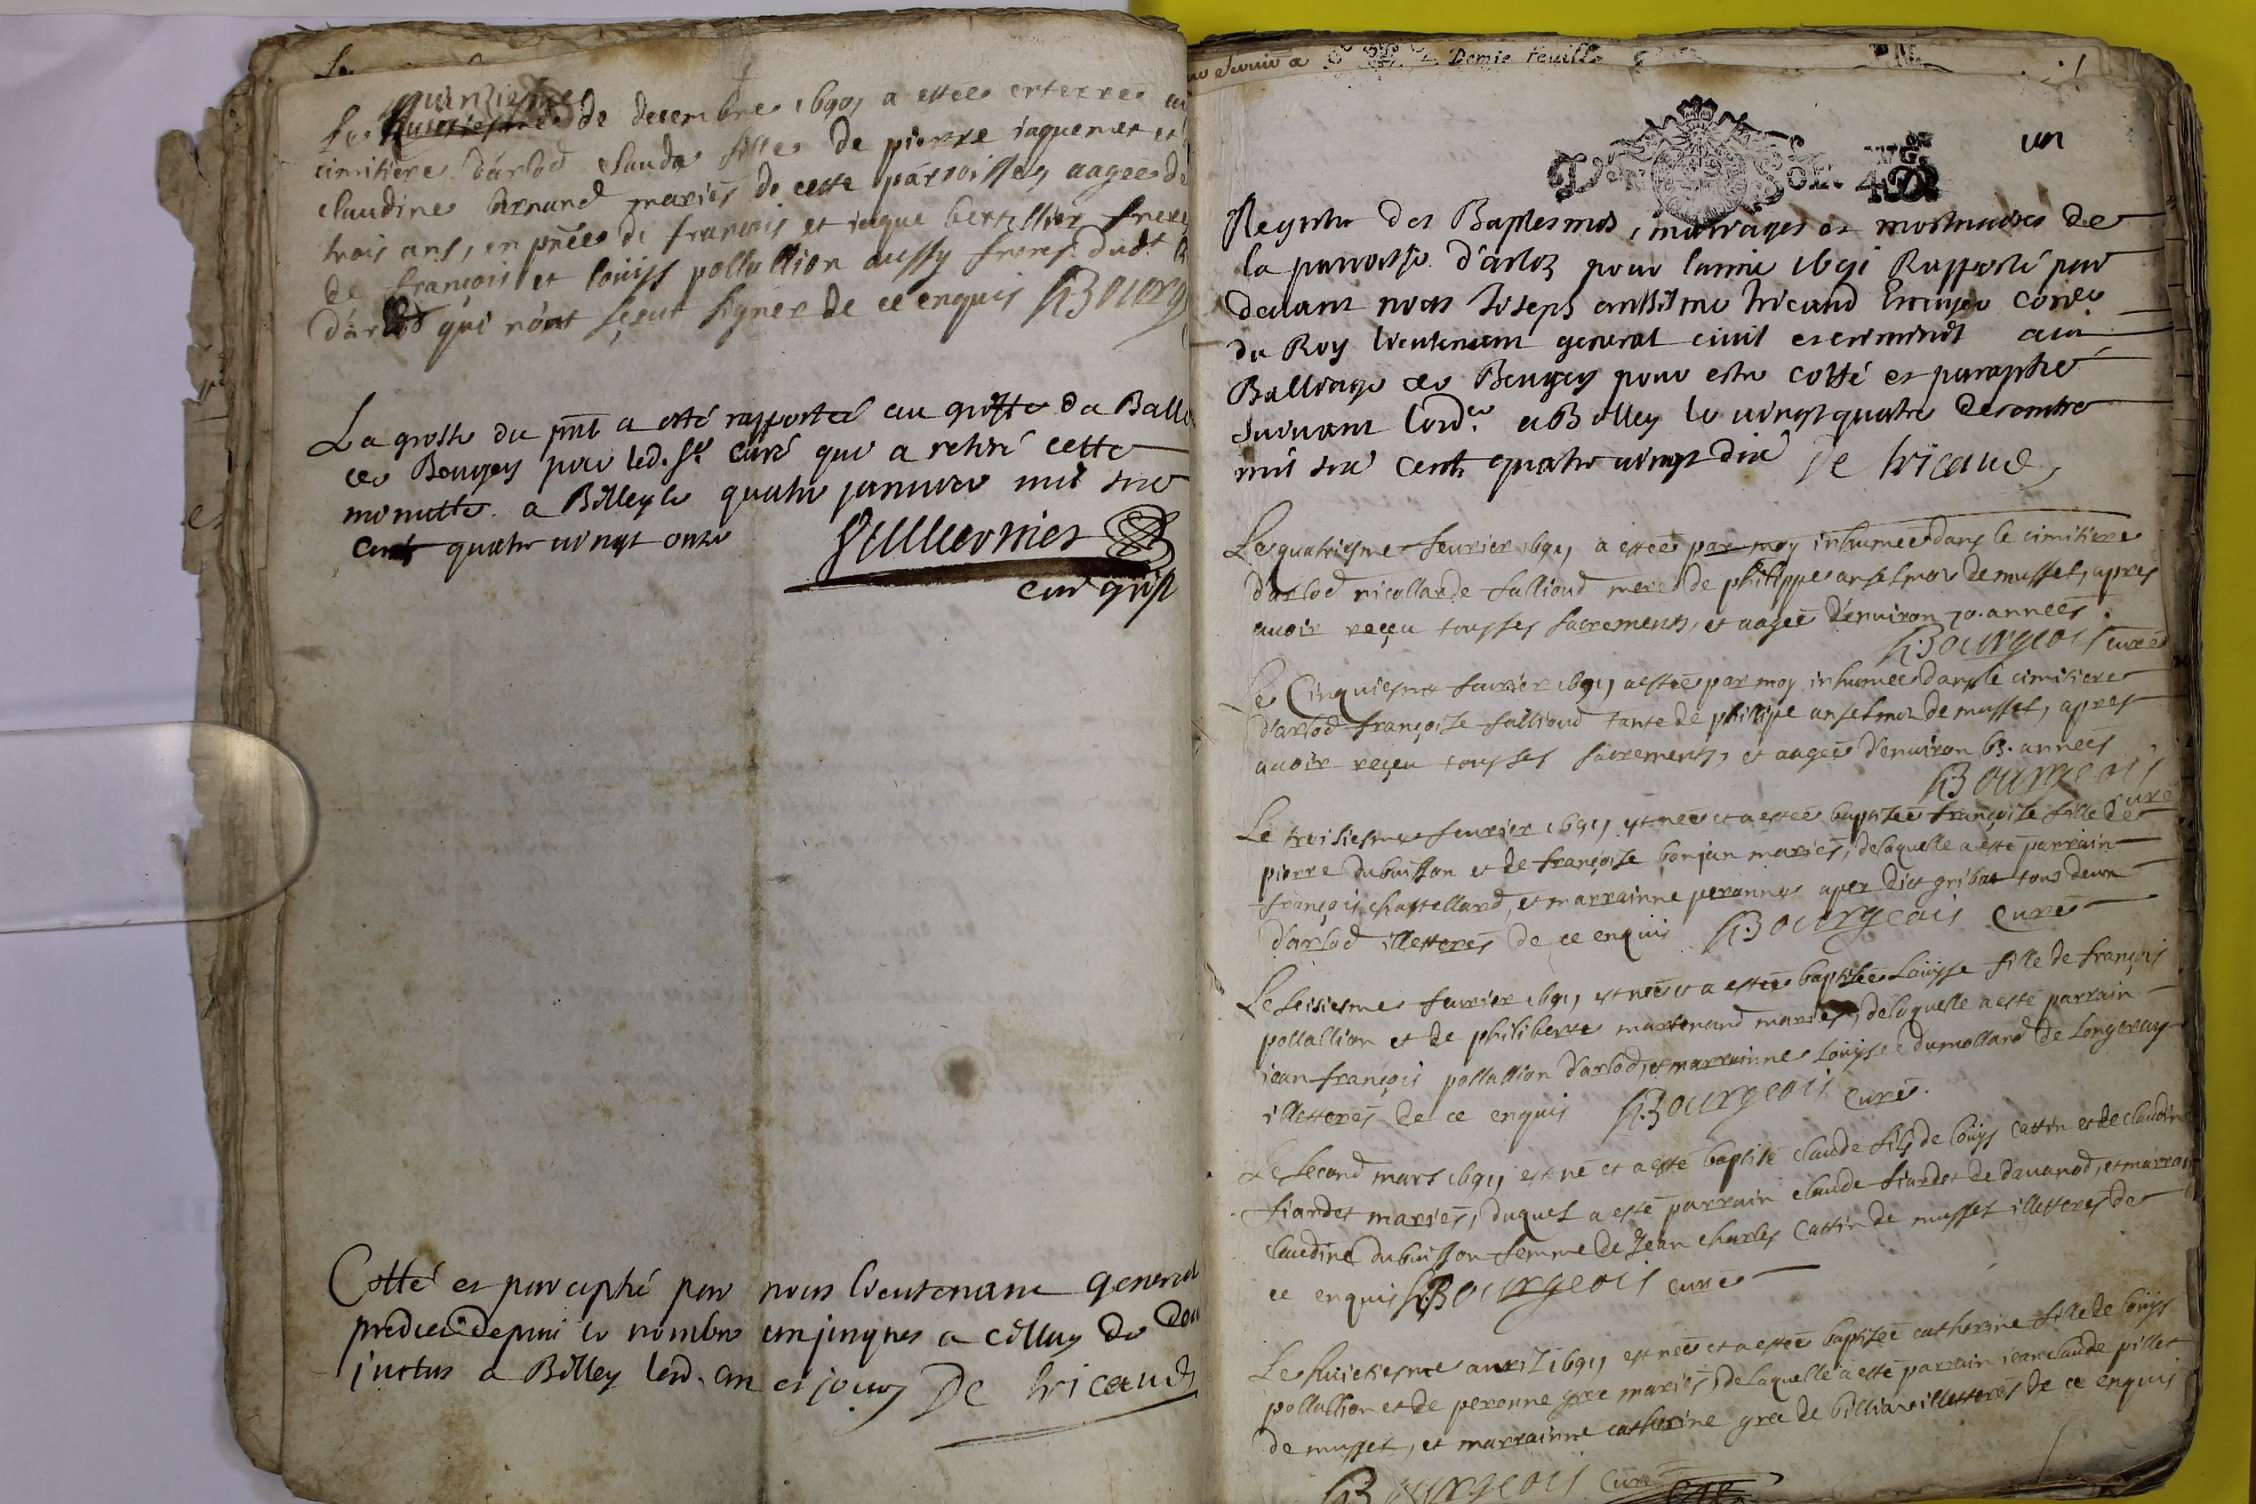 Le quinziesme
de decembre 1690, a estée enterrée au
cimitiere d'arlod Clauda fille de pierre iaquemet et
claudine bernand mariés de cette parroisse, aagée de
trois ans, en pñce de françois et iaque bertellier freres
de françois et loüijs pollallion aussy freres dudt
d'arlod qui n'ont sçeut signer de ce enquis Bourg
La grosse du pnt a esté rapportée au greffe du Balle
de Beugey par led. Sr. Curé qui a retiré cette
minutte a Belley le quatre janvier mil six
cent quatre vingt onze
Com greff
Cotté et paraphé par nous lieutenant general
depuis le nombre un jusques a celluy de
a Belley led. an et jour De tricaud
Demie feuille
un
Registre des Baptesmes, mariages et mortuaires de
la parroisse d'arloz pour l'année 1691 Rapporté par
devant nous Joseph anthelme tricaud Escuyer Coner
du Roy lieutenant general civil et criminel au
Balliage de Beugey pour estre cotté et paraphé
suivant l'ord.ce a Belley le vingt quatre decembre
mil six cents quatre vingt dix De tricaud
Le quatriesme feurier 1691, a estée par moy inhumée dans le cimitiere
d'arlod nicollarde falliond mere de philippe anselmoz de musset, apres
auoir reçeu tous ses sacrements, et aagée d'enuiron 70. années
Bourgeois curé
Le Cinquiesme feurier 1691, a estée par moy inhumée dans le cimitiere
d'arlod françoise falliond tante de philipe anselmoz de musset, apres
auoir reçeu tous ses sacrements, et aagée d'enuiron 63. années
Bourgeois
curé
Le troisiesme feurier 1691, est née et a estée baptisée françoise fille de
pierre dubuisson et de françoise bonjan mariés, de laquelle a esté parrain
françois chastellard, et marrainne peronne aper dict gribat tous deux
d'arlod illetterés de ce enquis Bourgeois Curé
Le seisiesme feurier 1691, est née et a estée baptisée Loüyse fille de françois
pollallion et de philiberte martenand mariés, de laquelle a esté parrain
iean françois pollallion d'arlod, et marrainne loüyse dumollard de Longeray
illetterés de ce enquis Bourgeois Curé.
Le second mars 1691, est né et a esté baptisé claude fils de loüys Cattin et de claudine
fiardet mariés, duquel a esté parrain claude fiardet de dauanod, et marrai
Claudine dubuisson femme de Jean charles Cattin de musset illetterés de
ce enquis Bourgeois curé
Le huictiesme auril 1691, est née et a estée baptisée catherine fille de loüys
pollallion et de peronne gree mariés, de laquelle a esté parrain iean claude pillet
de musset, et marrainne catherine gree de billiat illetterés de ce enquis
Bourgeois Curé